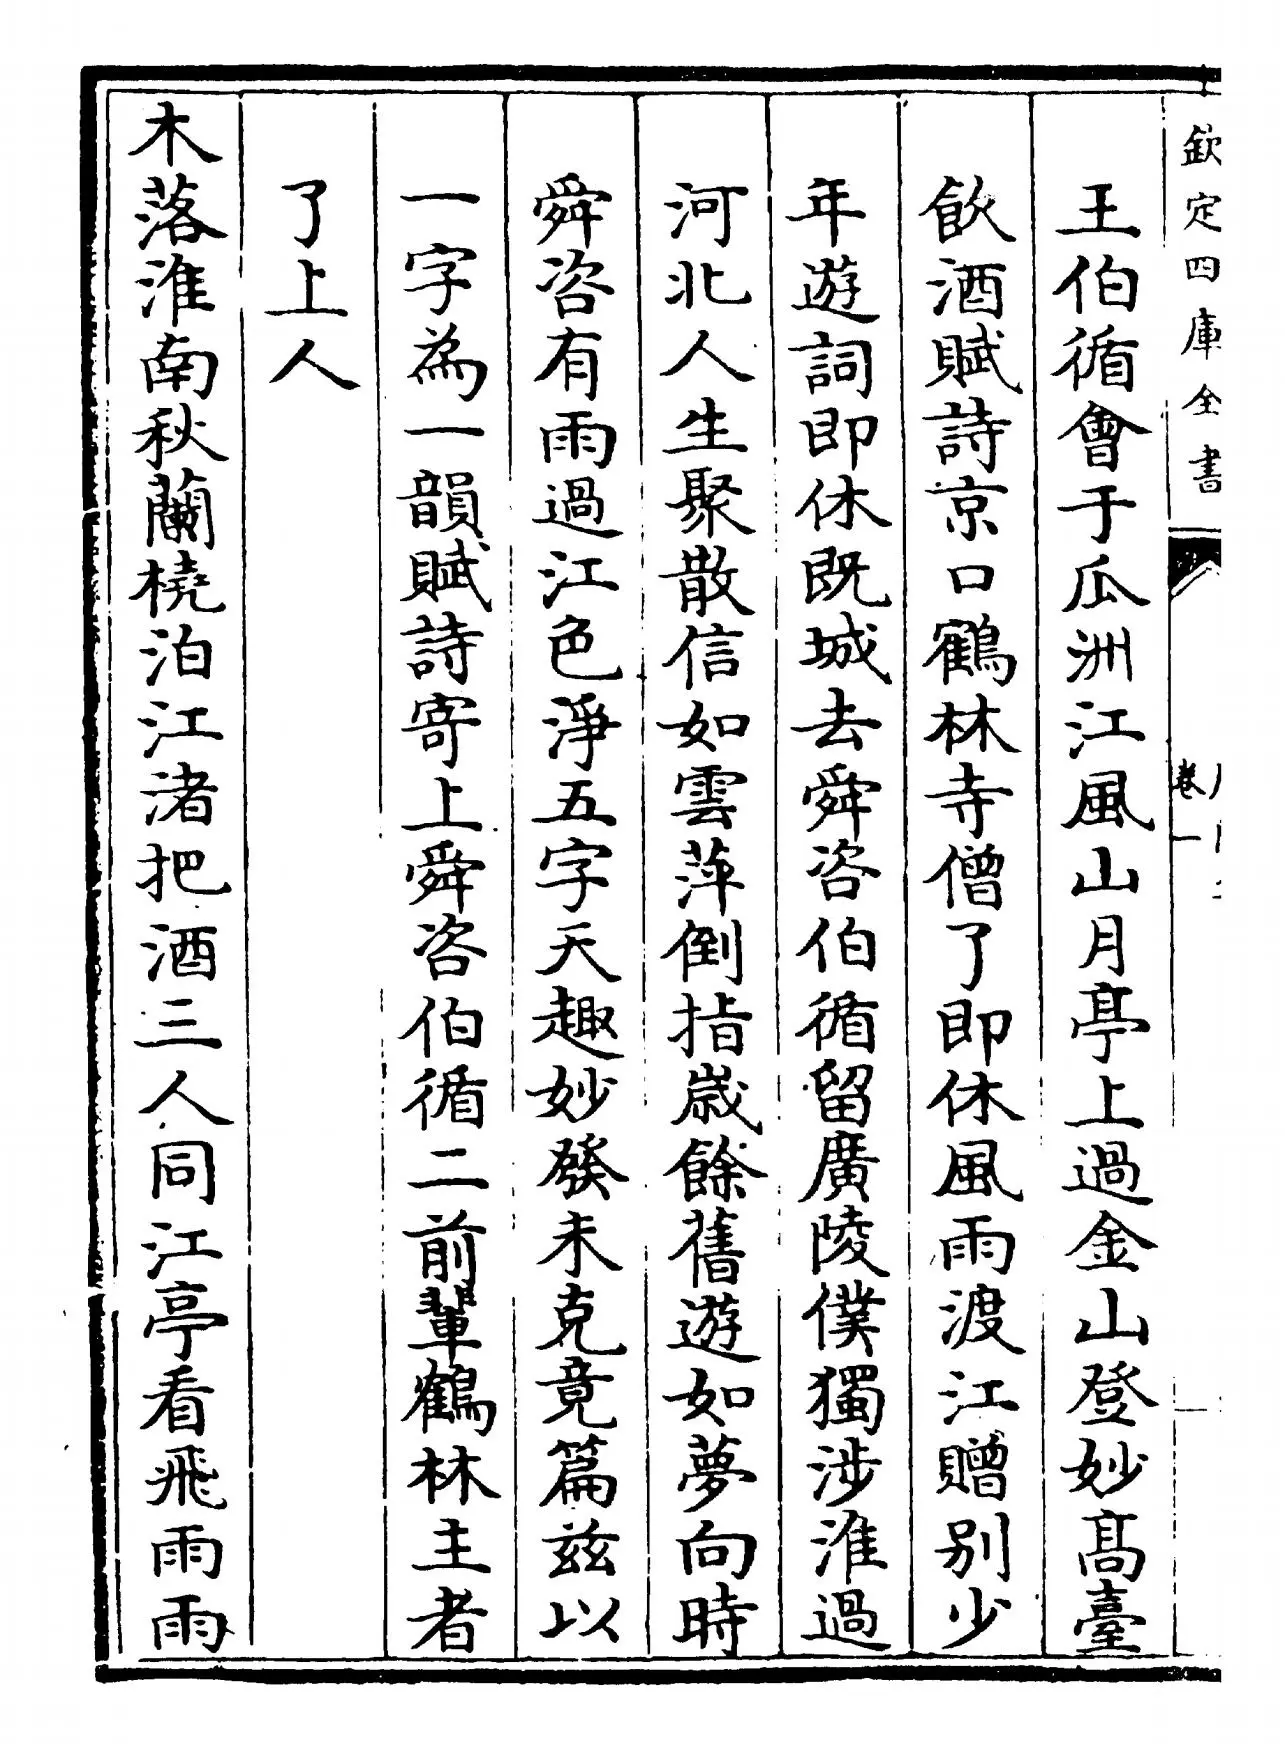 欽定四庫全書
卷一
王伯循會于瓜洲江風山月亭上過金山登妙髙臺
飲酒賦詩京口鶴林寺僧了即休風雨渡江贈别少
年遊詞即休既城去舜咨伯循留廣陵僕獨涉淮過
河北人生聚散信如雲萍倒指嵗餘舊遊如夢向時
舜咨有雨過江色淨五字天趣妙發未克竟篇兹以
一字為一韻賦詩寄上舜咨伯循二前輩鶴林主者
了上人
木落淮南秋蘭橈泊江渚把酒三人同江亭看飛雨雨